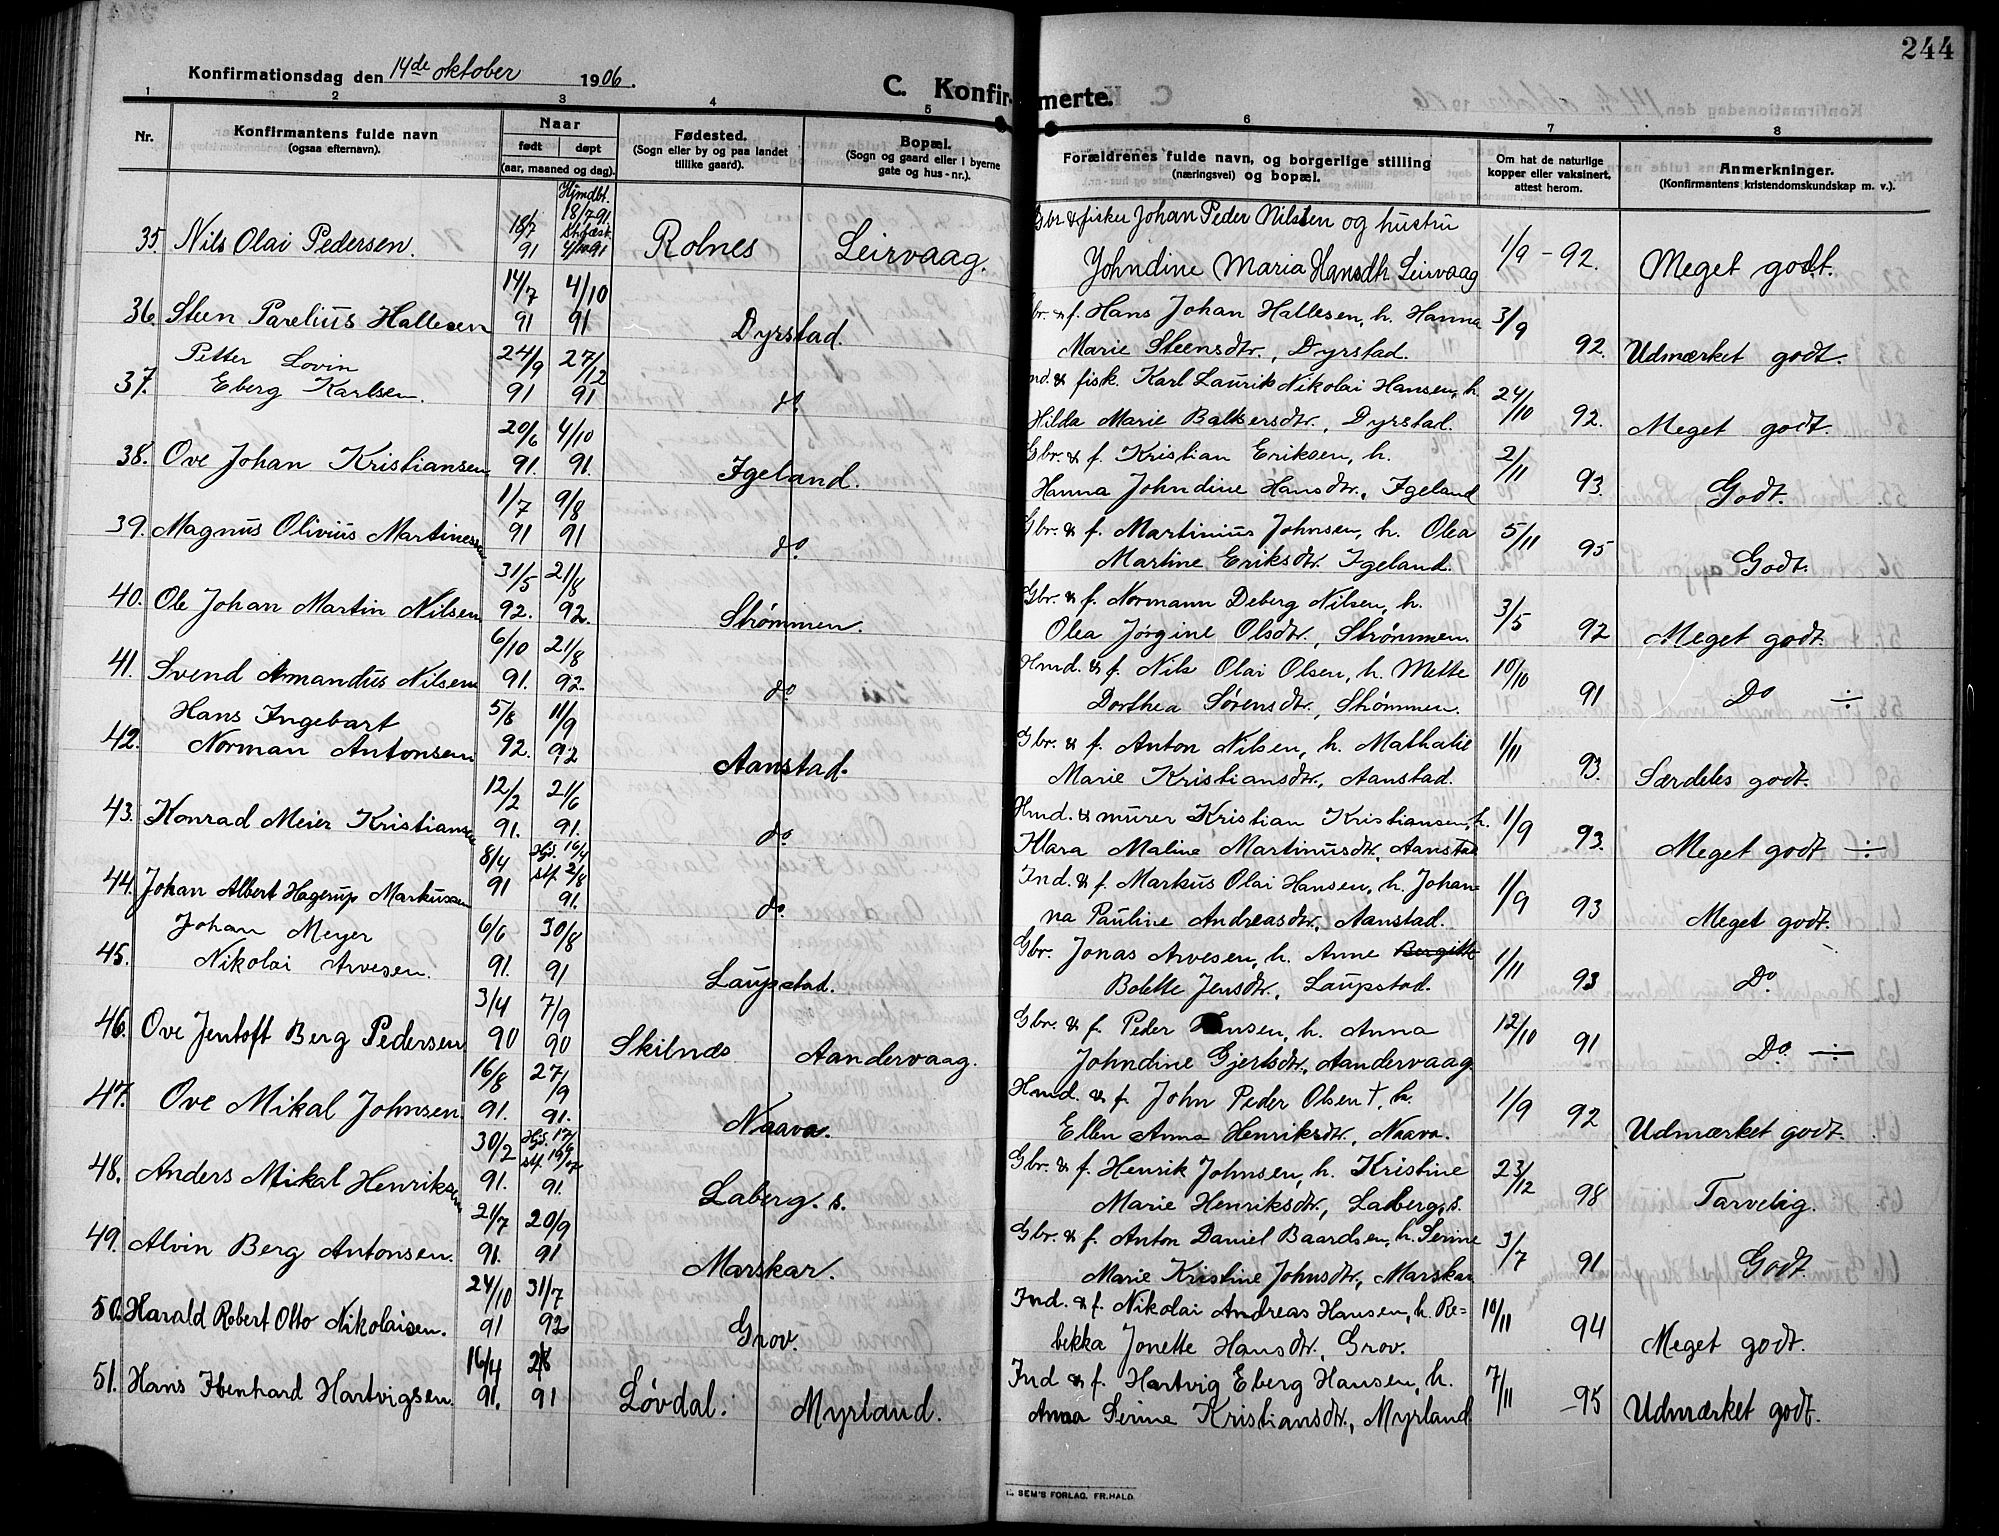 244
Konfirmationsdag den 14de oktober 1906.
C. Konfirmerte.
1 2 3 4 5 6 7 8
Nr.
Konfirmantens fulde navn
(ogsaa efternavn).
Naar
født døpt
(aar, maaned og dag).
Fødested.
(Sogn eller by og paa landet
tillike gaard).
Bopæl.
(Sogn og gaard eller i byerne
gate og hus-nr.).
Forældrenes fulde navn, og borgerlige stilling
(næringsvei) og bopæl.
Om hat de naturlige
kopper eller vaksinert,
attest herom.
Anmerkninger.
(Konfirmantens kristendomskundskap m. v.).
35. Nils Olai Pedersen. 18/7 91 Hjmdbt. 18/7 91. 91 Rolnes Leirvaag. Gbr & fisker Johan Peder Nilsen og hustru
Johndine Maria Hansdh Leirvaag 1/9 - 92. Meget godt.
36. Steen Parelius Hallesen 14/7 91 4/10 91 Dyrstad. Gbr. & f. Hans Johan Hallesen, h. Hanna
Marie Steensdtr., Dyrstad. 3/9 92. Udmærket godt.
37. Petter Lovin
Eberg Karlsen. 24/9 91 27/12 91 do Ind. & fisk. Karl Laurik Nikolai Hansen, h.
Hilda Marie Baltsersdtr., Dyrstad. 24/10 92. Meget godt.
38. Ove Johan Kristiansen 20/6 91. 4/10 91. Igeland. Gbr. & f. Kristian Eriksen, h.
Hanna Johndine Hansdtr., Igeland 2/11 93. Godt.
39. Magnus Olivius Martinessen 1/7 91 9/8 91 do. Gbr. & f. Martinius Johnsen, h. Olea
Martine Eriksdtr. Igeland. 5/11 95 Godt.
40. Ole Johan Martin Nilsen 31/5 92. 21/8 92. Strømmen. Gbr. & f. Normann Deberg Nilsen, h.
Olea Jørgine Olsdtr., Strømmen. 3/5 92 Meget godt.
41. Svend Armandus Nilsen 6/10 91. 21/8 92. do Hmd. & f. Nils Olai Olsen, h. Mette
Dorthea Sørensdtr., Strømmen. 10/10 91 Do ÷
42. Hans Ingebart
Norman Antonsen 5/8 92. 11/9 92 Aanstad. Gbr. & f. Anton Nilsen, h. Mathalie
Marie Kristiansdtr., Aanstad. 1/11 93. Særdeles godt.
43. Konrad Meier Kristiansen 12/2 91. 21/6 91. do. Hmd. & murer Kristian Kristiansen, h.
Klara Maline Martinusdtr., Aanstad 1/9 93. Meget godt ÷
44. Johan Albert Hagerup Markussen 8/4 91 Hjd. 16/4 stf. 2/8 91. do. Ind. & f. Markus Olai Hansen, h. Johan-
na Pauline Andreasdtr., Aanstad. 1/9 93 Meget godt.
45. Johan Meyer
Nikolai Arvesen. 6/6 91. 30/8 91 Laupstad. Gbr. Jonas Arvesen, h. Anne Bergitte
Bolette Jensdtr., Laupstad. 1/11 93 Do.
46. Ove Jentoft Berg Pedersen 3/4 90 7/9 90 Skilnes Aandervaag. Gbr. & f. Peder Hansen, h. Anna
Johndine Gjertsdtr., Aandervaag 12/10 91 Do. ÷
47. Ove Mikal Johnsen 16/8 91. 27/9 91. Naava. Hmd. & f. John Peder Olsen †, h.
Ellen Anna Henriksdtr., Naava. 1/9 92 Udmærket godt.
48. Anders Mikal Henriksen 30/2 91. Hjd. stf. 91. Laberg. s. Gbr. & f. Henrik Johnsen, h. Kristine
Marie Henriksdtr., Laberg, s. 23/12 98 Tarvelig.
49. Alvin Berg Antonsen. 21/7 91. 20/9 91 Marskar. Gbr. & f. Anton Daniel Baardsen, h. Serine
Marie Kristine Johnsdtr., Marskar 3/7 91 Godt.
50. Harald Robert Otto Nikolaisen. 24/10 91 31/7 92 Grov. Ind. & f. Nikolai Andreas Hansen, h. Re-
bekka Jonette Hansdtr., Grov. 10/11 94 Meget godt.
51. Hans Ibenhard Hartvigsen 16/4 91. 91 Løvdal. Myrland. Ind & f. Hartvig Eberg Hansen, h.
Anna Serine Kristiansdtr., Myrland 7/11 -95 Udmærket godt.
SEM'S FORLAG. FR.HALD.